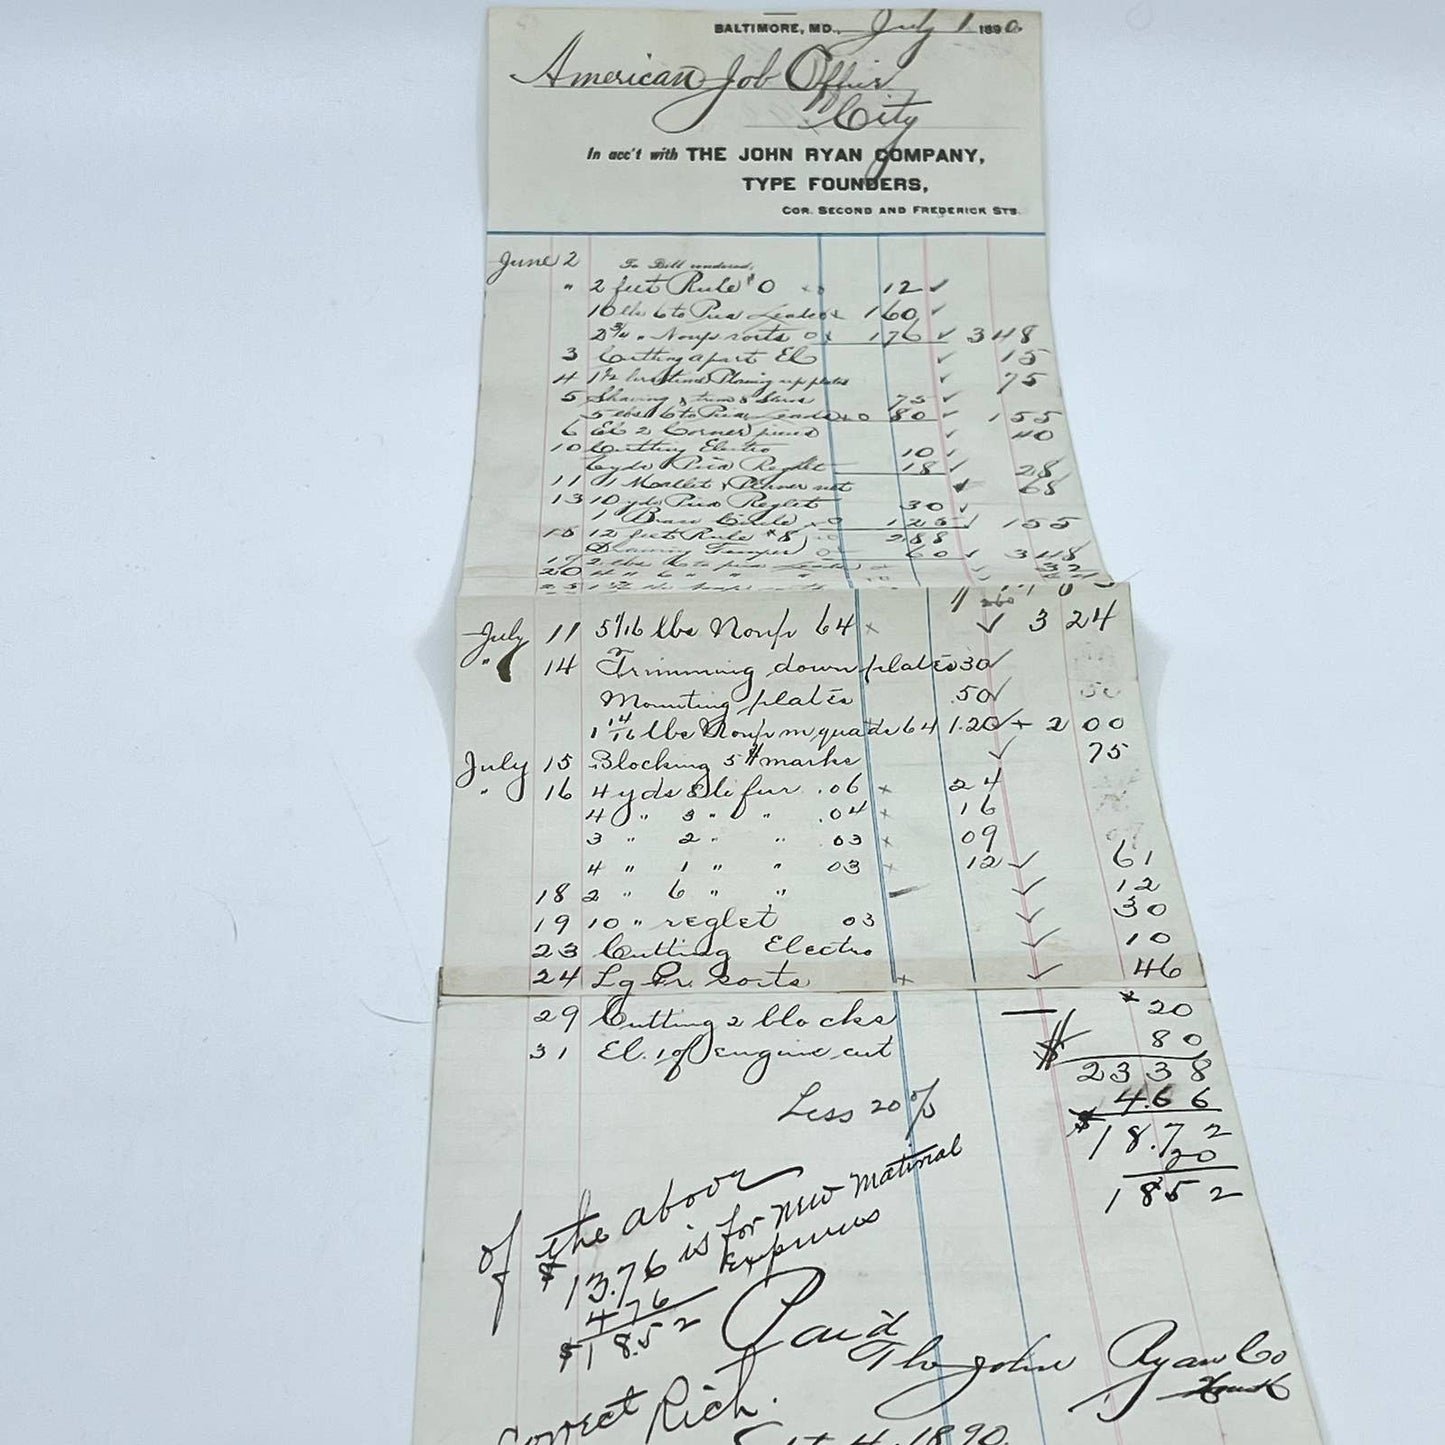 BALTIMORE, MD., July 1 1890
American Job Office
City
In acc't with THE JOHN RYAN COMPANY,
TYPE FOUNDERS,
COR. SECOND AND FREDERICK STS.
June 2 To Bill rendered,
" 2 feet Rule 12 ✓
10 lbs 6 to Pica Leads 160 ✓
2 3/4 " Nonp sorts 176 ✓ 3 48
3 Cutting apart El ✓ 15
4 1 1/2 up plates ✓ 75
5 Shaving & 75 ✓
5 lbs 6 to Pica Leads 80 ✓ 1 55
6 El 2 Corner pieces ✓ 40
10 Cutting Electro 10 ✓
6 yds Pica Reglet 18 ✓ 28
11 1 Mallet & Planer net 68
13 10 yds Pica Reglet 30 ✓
1 Brass Circle 125 ✓ 1 55
15 12 feet Rule #8 2.88
60 ✓ 3 48
19 2 lbs 6 to pica Leads ✓ 32
20 " 6 " " ✓
July 11 5 1/16 lbs Nonp 64 x ✓ 3 24
" 14 Trimming down plates 30 ✓
Mounting plates .50 ✓ 50
1 14/16 lbs Nonp m quads 64 1.20 ✓ + 2 00
July 15 Blocking 5 # marks ✓ 75
" 16 4 yds fur .06 x 24
4 " 3 " " .04 x 16
3 " 2 " " .03 x 09
4 " 1 " " 03 x 12 ✓ 61
18 2 " 6 " " ✓ 12
19 10 " reglet 03 ✓ 30
23 Cutting Electro ✓ 10
24 Lg Pr. sorts x ✓ 46
29 Cutting 2 blocks — * 20
31 El. 1 of engine cut 80
$ 23 38
Less 20% 4.66
$ 18.72
20
18 52
Of the above
$13.76 is for New Material
4 76 Expenses
$18.52
Paid
The John Ryan Co
Correct Rich.
Sept 4. 1890.